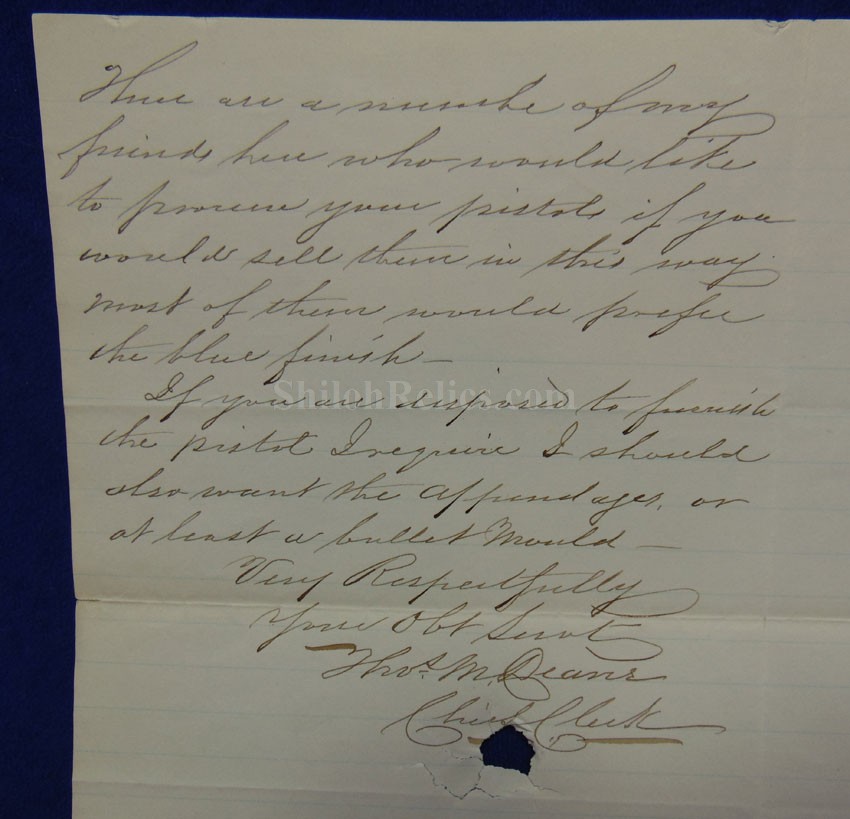 There are a numbe of my
friends here who would like
to procure your pistols if you
would sell them in this way
most of them would prefer
the blue finish —
ShilohRelics.com
If you are disposed to furnish
the pistol I require I should
also want the appendages, or
at least a bullet Mould —
Very Respectfully
Your Obt Servt
Thos. M. Deans
Chief Clerk